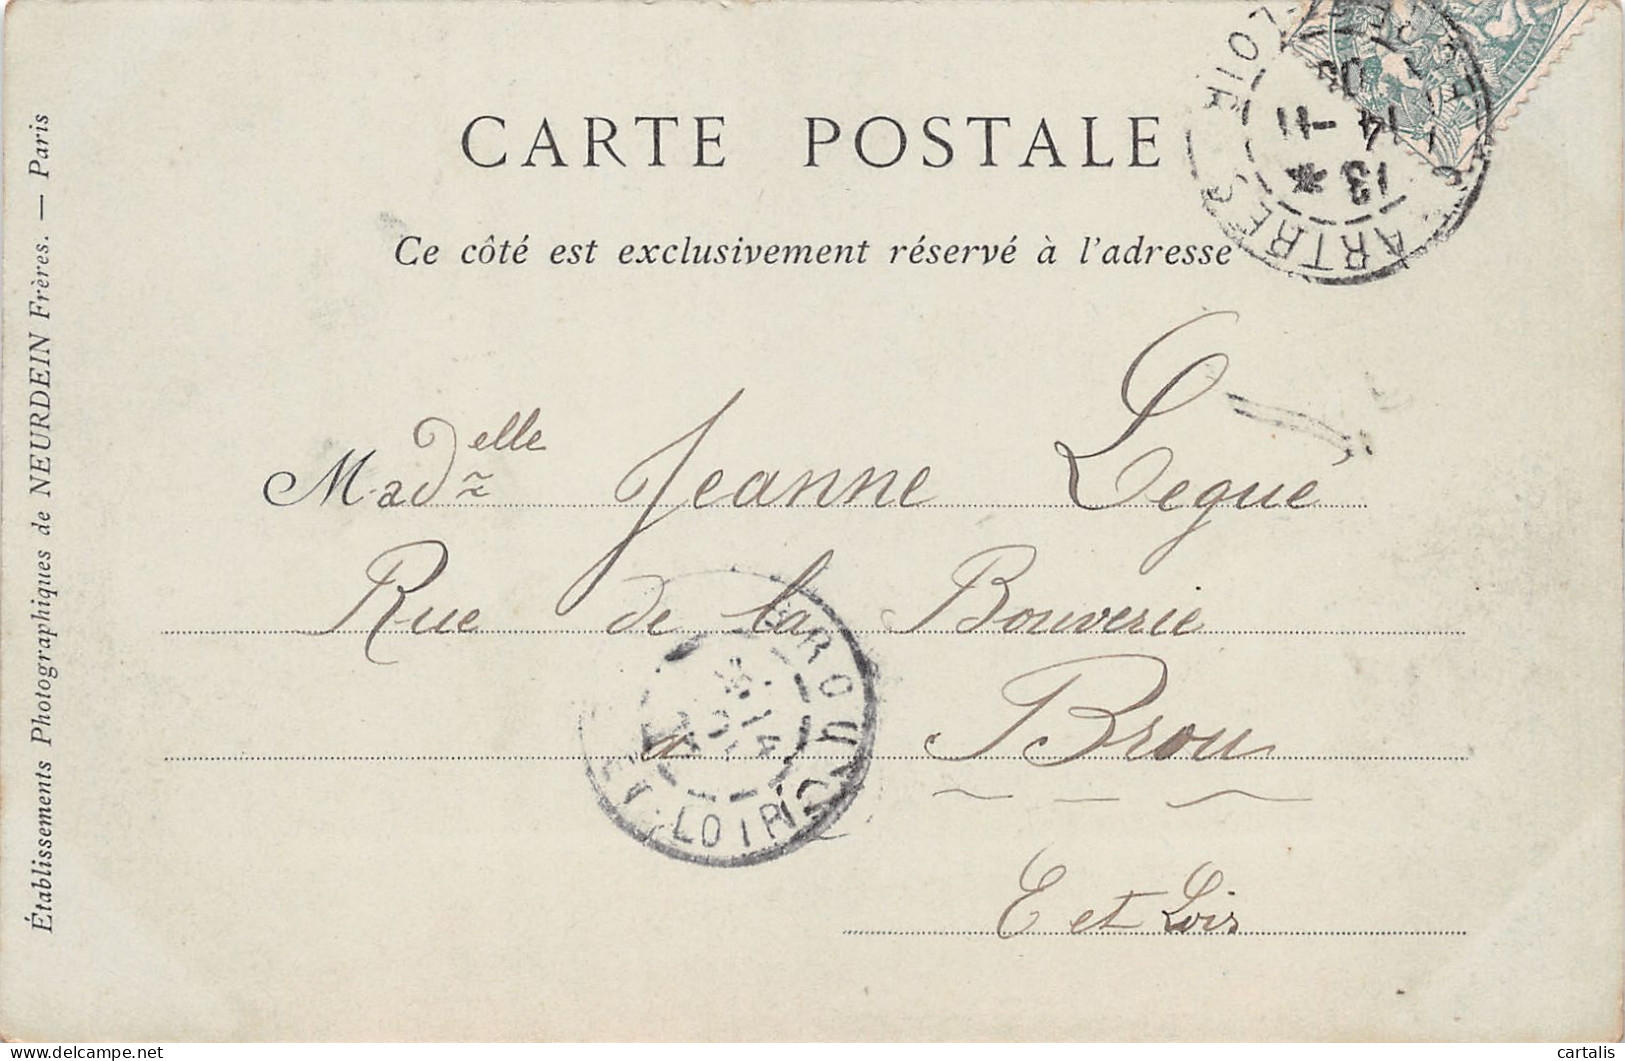 CARTE POSTALE
Ce côté est exclusivement réservé à l'adresse
Établissements Photographiques de NEURDEIN Frères. — Paris
Madelle Jeanne Legué
Rue de la Bouverie
a Brou
E et Loir
13 *
14 -11
LOIR
BROU
LOIR
delcampe.net
cartalis